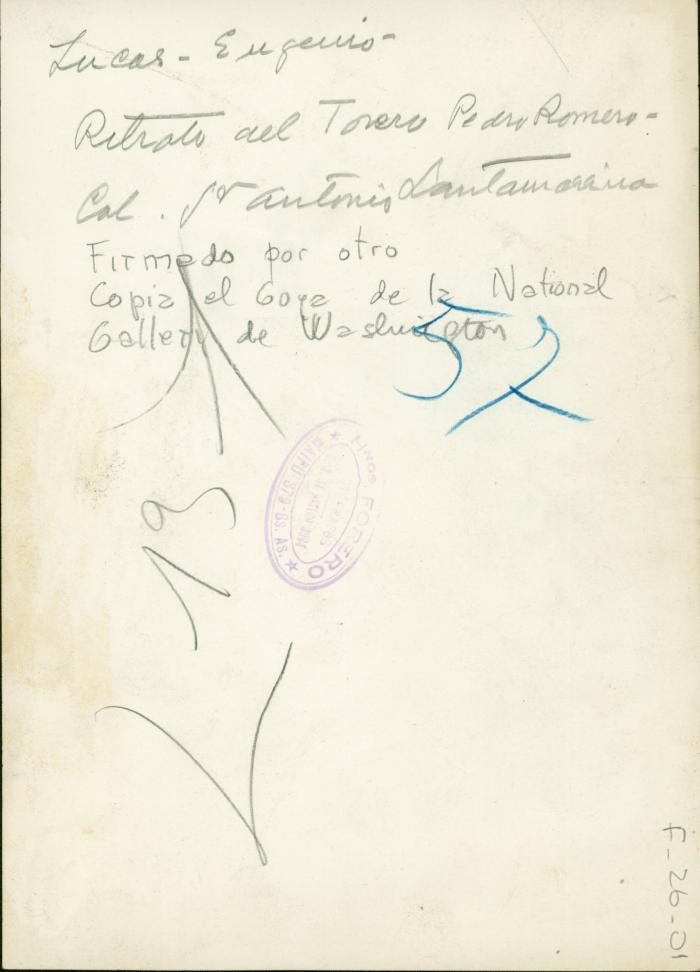 Lucas - Eugenio -
Retrato del Torero Pedro Romero -
Col. Sr Antonio Santamarina
Firmado por otro
Copia el Goya de la National
Gallery de Washington
52
Hnos. FORERO
★ MAIPU-379-Bs. As. ★
19
F-26-01